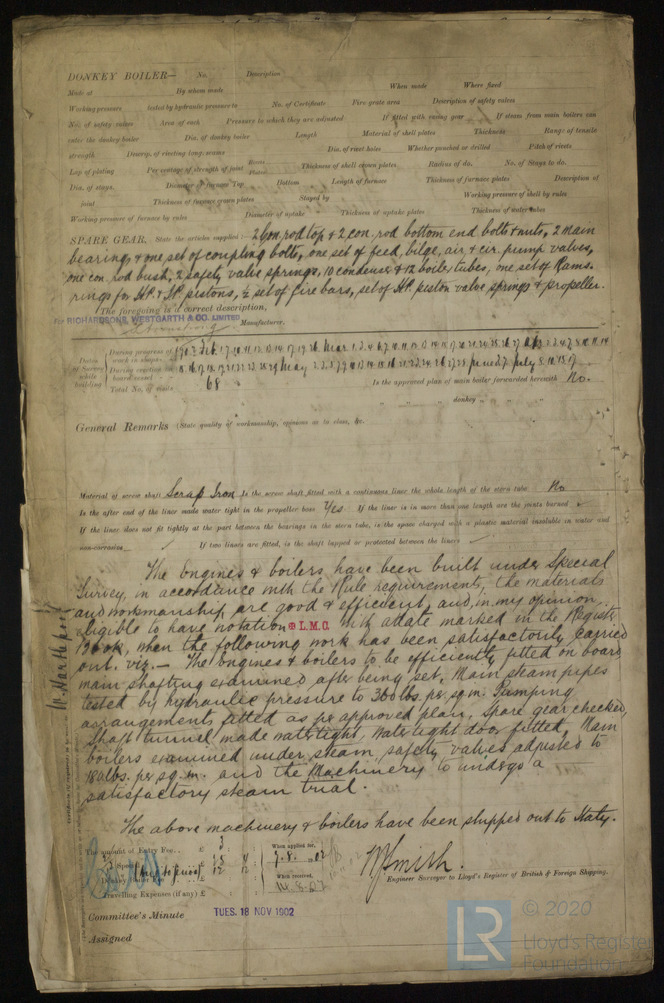 DONKEY BOILER— No. Description
Made at By whom made When made Where fixed
Working pressure tested by hydraulic pressure to No. of Certificate Fire grate area Description of safety valves
No. of safety valves Area of each Pressure to which they are adjusted If fitted with easing gear If steam from main boilers can
enter the donkey boiler Dia. of donkey boiler Length Material of shell plates Thickness Range of tensile
strength Descrip. of riveting long. seams Dia. of rivet holes Whether punched or drilled Pitch of rivets
Lap of plating Per centage of strength of joint Rivets Plates Thickness of shell crown plates Radius of do. No. of Stays to do.
Dia. of stays. Diameter of furnace Top Bottom Length of furnace Thickness of furnace plates Description of
joint Thickness of furnace crown plates Stayed by Working pressure of shell by rules
Working pressure of furnace by rules Diameter of uptake Thickness of uptake plates Thickness of water tubes
SPARE GEAR. State the articles supplied:— 2 Con. rod top & 2 con. rod bottom end bolts & nuts, 2 main
bearing, & one set of coupling bolts, one set of feed, bilge, air, & cir. pump valves,
one con. rod bush, 2 safety valve springs, 10 condenser & 12 boiler tubes, one set of Rams.
rings for H.P. & I.P. pistons, ½ set of fire bars, set of H.P. piston valve springs & propeller.
The foregoing is a correct description,
For RICHARDSONS, WESTGARTH & CO. LIMITED
Manufacturer.
Dates of Survey while building
During progress of work in shops
During erection on board vessel
Total No. of visits 68
Is the approved plan of main boiler forwarded herewith No.
" " " donkey " " "
General Remarks (State quality of workmanship, opinions as to class, &c.
Material of screw shaft Scrap Iron Is the screw shaft fitted with a continuous liner the whole length of the stern tube No
Is the after end of the liner made water tight in the propeller boss Yes If the liner is in more than one length are the joints burned
If the liner does not fit tightly at the part between the bearings in the stern tube, is the space charged with a plastic material insoluble in water and
non-corrosive If two liners are fitted, is the shaft lapped or protected between the liners
The Engines & boilers have been built under Special
Survey, in accordance with the Rule requirements, the materials
and workmanship are good & efficient, and, in my opinion,
eligible to have notation ✠ L.M.C. with a date marked in the Register
Book, when the following work has been satisfactorily carried
out. viz.— The Engines & boilers to be efficiently fitted on board,
main shafting examined after being set, Main steam pipes
tested by hydraulic pressure to 360 lbs. per sq. in. Pumping
arrangements fitted as per approved plan, Spare gear checked,
Shaft tunnel made watertight, Water tight door fitted, Main
boilers examined under steam, safety valves adjusted to
180 lbs. per sq. in. and the Machinery to undergo a
satisfactory steam trial.
The above machinery & boilers have been shipped out to Italy.
W. Hartlepool
The amount of Entry Fee.. £ 3
When applied for,
When received,
14.8.02
Travelling Expenses (if any) £
Engineer Surveyor to Lloyd's Register of British & Foreign Shipping.
Committee's Minute TUES. 18 NOV 1902
Assigned
LR © 2020
Lloyd's Register
Foundation